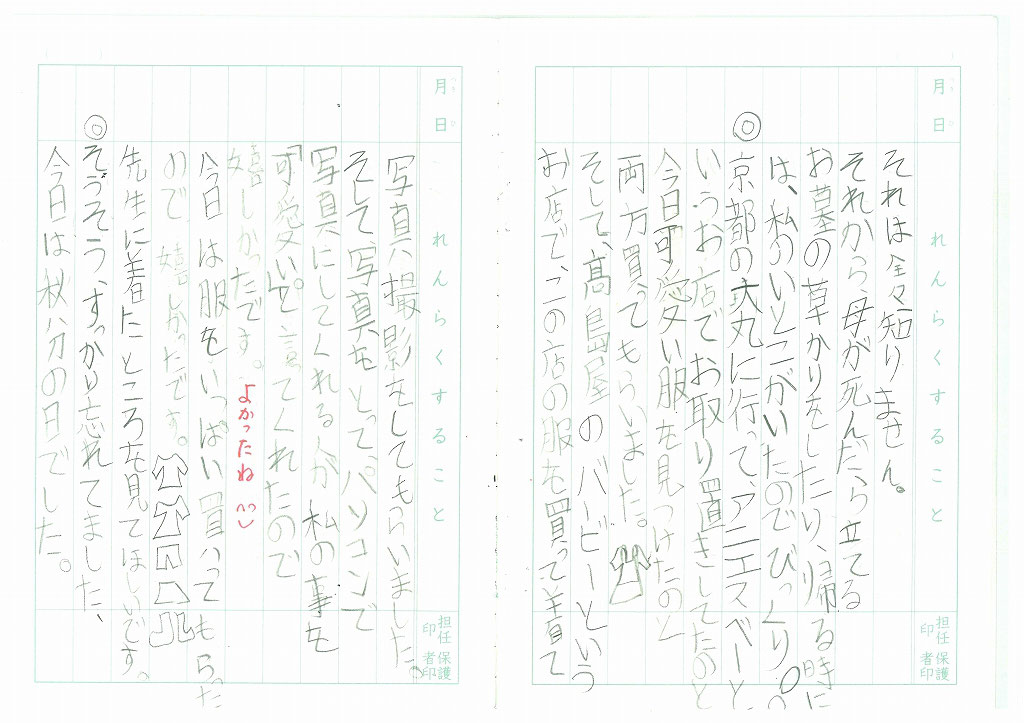 月 日
れんらくすること
担任印
保護者印
それは全々知りません。
それから、母が死んだら立てる
お墓の草かりをしたり、帰る時に
は、私のいとこがいたのでびっくり。
◎京都の大丸に行って、アニエスベーと
いうお店でお取り置きしてたのと
今日可愛い服を見つけたのと
両方買ってもらいました。
そして、髙島屋のバービーという
お店で、この店の服を買って着て
月 日
れんらくすること
担任印
保護者印
写真撮影をしてもらいました。
そして、写真をとって、パソコンで
写真にしてくれる人が私の事を
「可愛い。」と言ってくれたので
嬉しかったです。
よかったね
今日は服をいっぱい買ってもらった
ので嬉しかったです。
先生に着たところを見てほしいです。
◎そうそう、すっかり忘れてました、
今日は秋分の日でした。